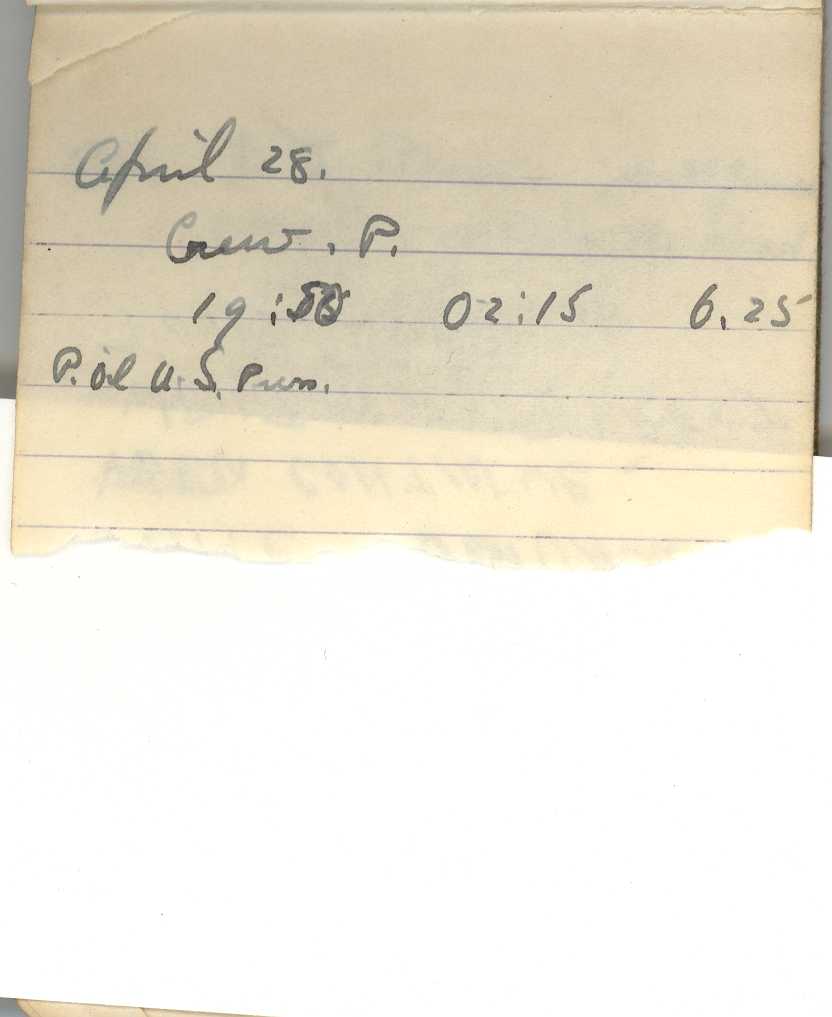 April 28.
Crew. P.
19:50 02:15 6.25
P. oil U.S. Purs.